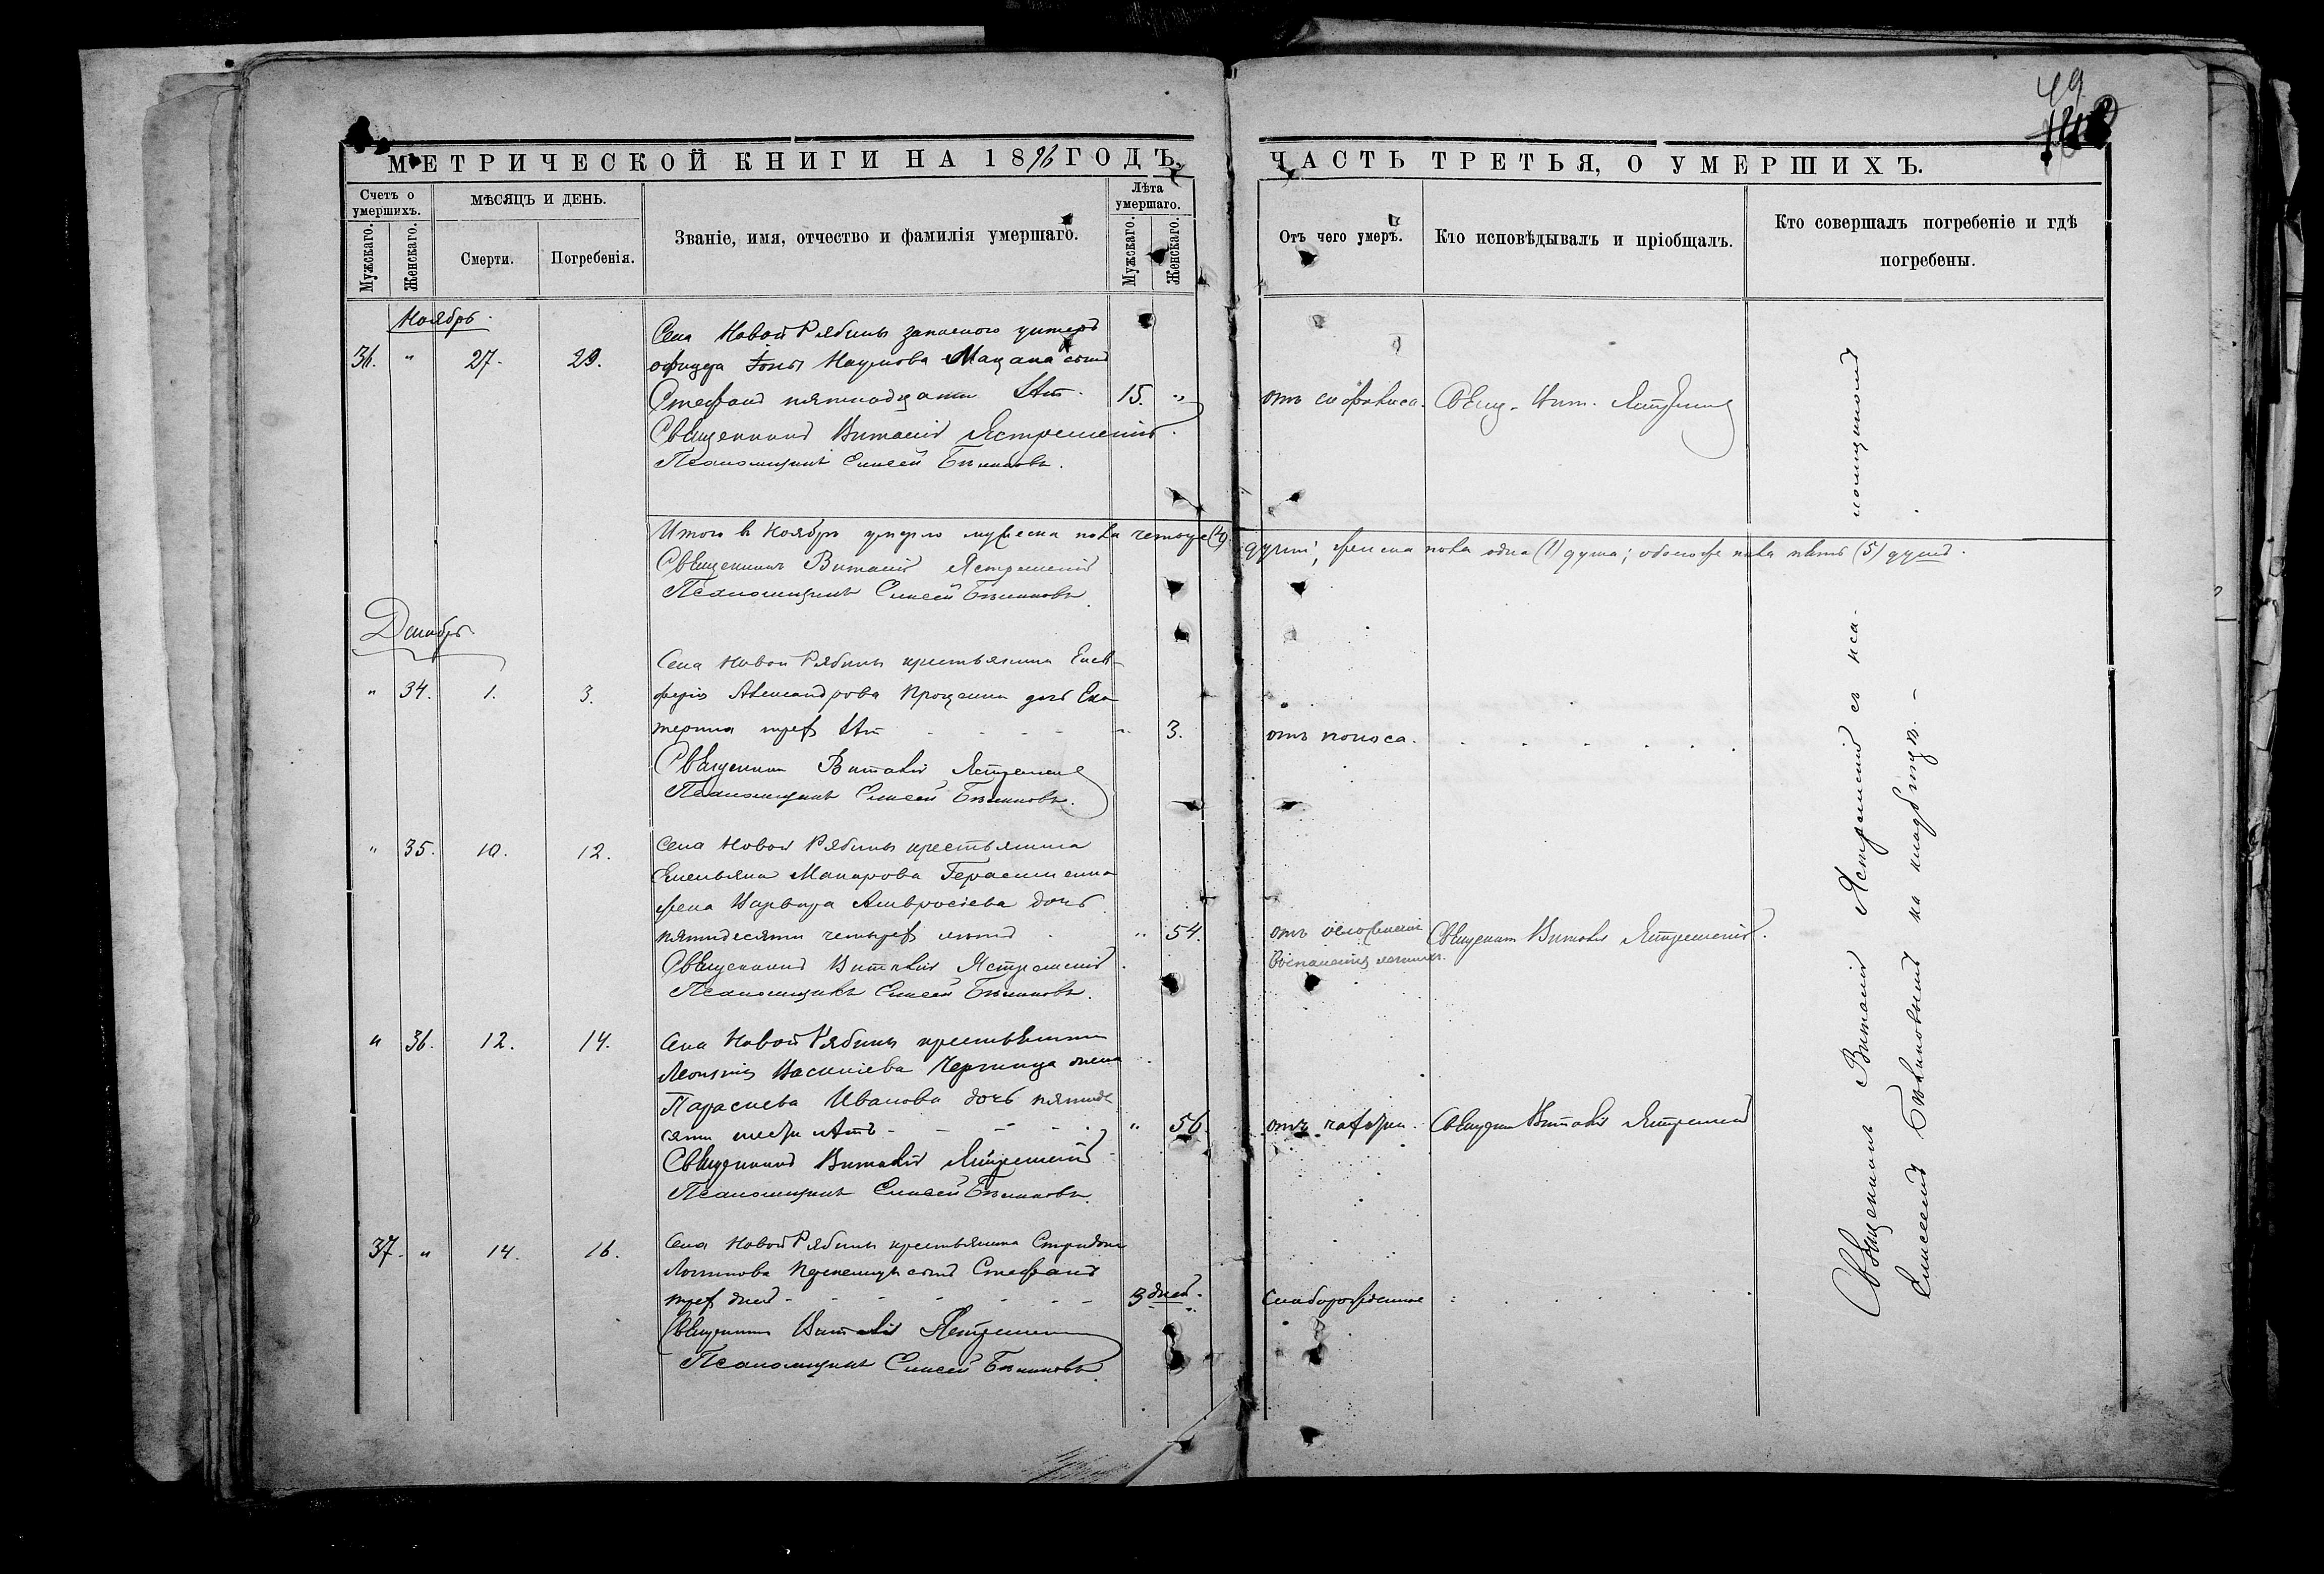 49
МЕТРИЧЕСКОЙ КНИГИ НА 1896 ГОДЪ,
Счетъ о умершихъ.
МѢСЯЦЪ И ДЕНЬ.
Званіе, имя, отчество и фамилія умершаго.
Лѣта умершаго.
Мужскаго.
Женскаго.
Смерти.
Погребенія.
Мужскаго.
Женскаго.
Ноябрь.
36. " 27. 29.
Села Новой Рябины запаснаго унтеръ
офицера Іоны Наумова Мацака сынъ
Стефанъ пятнадцати лѣт. 15. "
Священникъ Виталій Ястремскій.
Псаломщикъ Елисей Бѣликовъ.
Итого въ Ноябрѣ умерло мужеска пола четыре (4)
Священникъ Виталій Ястремскій
Псаломщикъ Елисей Бѣликовъ.
Декабрь
" 34. 1. 3.
Села Новой Рябины крестьянина Елев-
ферія Александрова Проценка дочь Ека
терина трех лѣт " 3.
Священник Виталій Ястремскій
Псаломщикъ Елисей Бѣликовъ.
" 35. 10. 12.
Села Новой Рябины крестьянина
Емельяна Макарова Герасименка
жена Варвара Амвросіева дочь
пятидесяти четырех лѣтъ " 54.
Священникъ Виталій Ястремскій
Псаломщикъ Елисей Бѣликовъ.
" 36. 12. 14.
Села Новой Рябины крестьянина
Леонтія Василіева жена
Параскева Иванова дочь пятиде
сяти шести лѣтъ " 56
Священникъ Виталій Ястремскій
Псаломщикъ Елисей Бѣликовъ.
37. " 14. 16.
Села Новой Рябины крестьянина Спиридона
Логинова сынъ Стефанъ
трех дней 3 дней.
Священникъ Виталій Ястремскій
Псаломщикъ Елисей Бѣликовъ.
ЧАСТЬ ТРЕТЬЯ, О УМЕРШИХЪ.
Отъ чего умеръ.
Кто исповѣдывалъ и пріобщалъ.
Кто совершалъ погребеніе и гдѣ погребены.
отъ Свящ. Вит. Ястремскій
души; женска пола одна (1) душа; обоего пола пять (5) душъ.
отъ поноса.
отъ осложненія Священник Виталій Ястремскій.
воспаленія легкихъ.
отъ чахотки. Священник Виталій Ястремскій
Слаборожденіе
Священникъ Виталій Ястремскій съ пса- ломщикомъ
Елисеемъ Бѣликовымъ на кладбищѣ. –